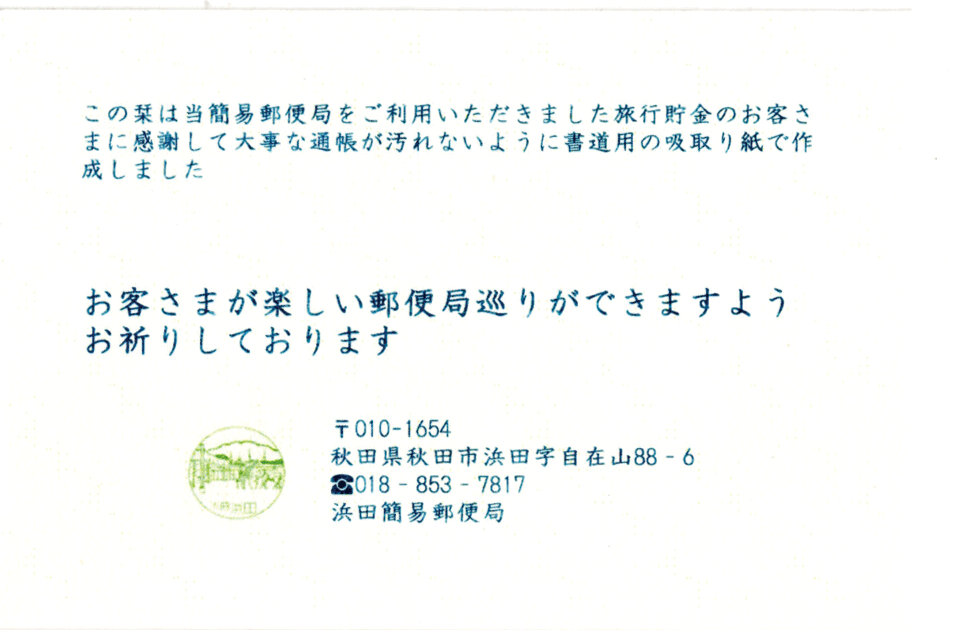 この栞は当簡易郵便局をご利用いただきました旅行貯金のお客さ
まに感謝して大事な通帳が汚れないように書道用の吸取り紙で作
成しました
お客さまが楽しい郵便局巡りができますよう
お祈りしております
〒010-1654
秋田県秋田市浜田字自在山88‐6
☎018‐853‐7817
浜田簡易郵便局
浜田